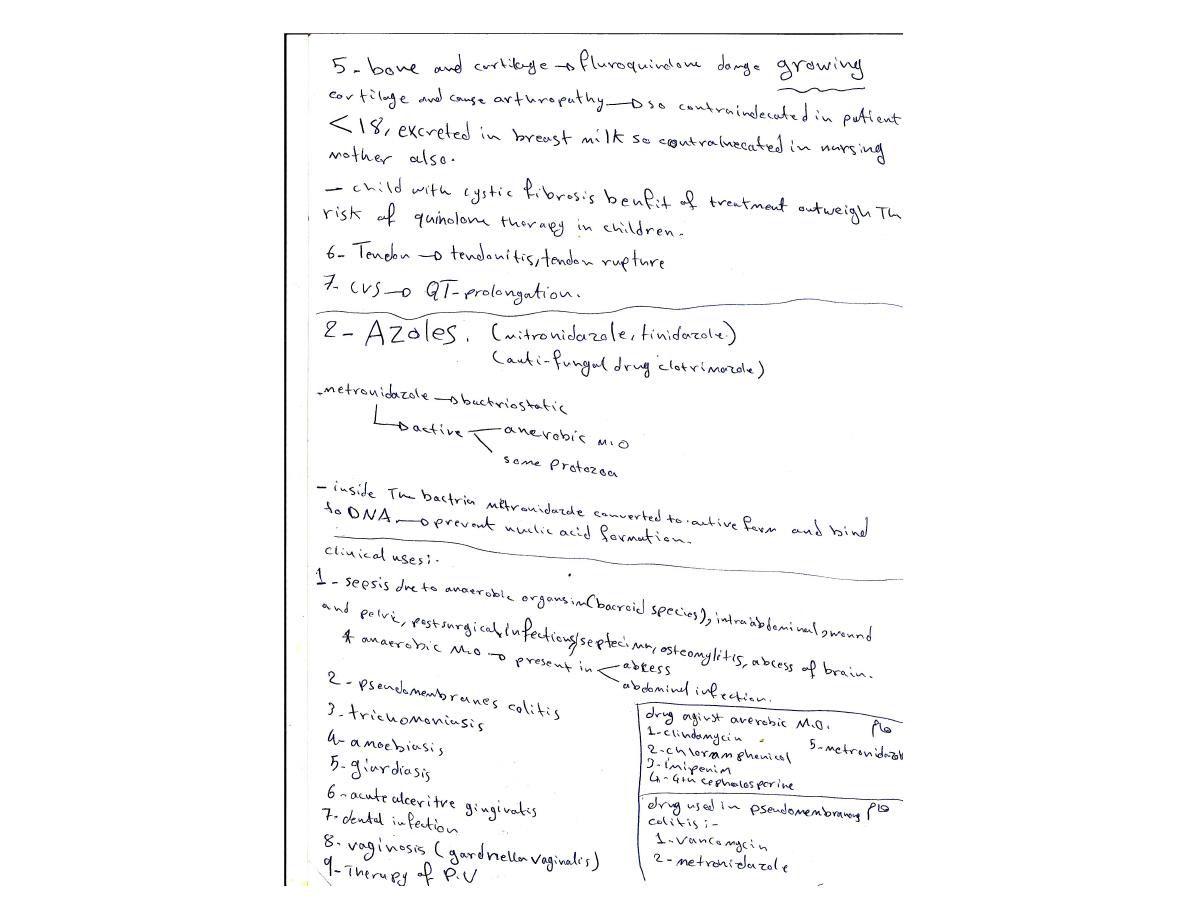 5- bone and cartilage → fluroquinolone damge growing
cortilage and cause arthropathy → so contraindecated in patient
<18, excreted in breast milk so contraînecated in nursing
mother also.
- child with cystic fibrosis benfit of treatment outweigh The
risk of quinolone therapy in children.
6- Tendon → tendonitis, tendon rupture
7- CVS → QT-prolongation.
2- Azoles. (mitronidazole, tinidazole)
(anti-fungal drug clotrimazole)
-metronidazole → bactriostatic
→ active anerobic M.O
some protozoa
- inside The bactria metronidazole converted to active form and bind
to DNA → prevent nuclic acid formation.
clinical uses:-
1- sepsis due to anaerobic organsim (bacroid species), intraabdominal, wound
and pelvic, postsurgical, infections, septecimia, osteomylitis, abcess of brain.
* anaerobic M.O → present in abcess
abdominal infection.
2- pseudomembranes colitis
3- trichomoniasis
4- amoebiasis
5- giardiasis
6- acute ulceritve gingivatis
7- dental infection
8- vaginosis (gardnella vaginalis)
9- Therapy of P.U
drug aginst anerobic M.O.
1- clindamycin
5- metronidazol
2- chloramphenicol
3- imipenim
4- 4th cephalosporine
drug used in pseudomembranous
colitis:-
1- vancomycin
2- metronidazole